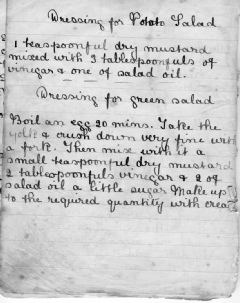 Dressing for Potato Salad
1 teaspoonful dry mustard
mixed with 3 tablespoonfuls of
vinegar & one of salad oil.
Dressing for green salad
Boil an egg 20 mins. Take the
yolk & crush down very fine with
a fork. Then mix with it a
small teaspoonful dry mustard
2 tablespoonfuls vinegar & 2 of
salad oil a little sugar Make up
to the required quantity with cream